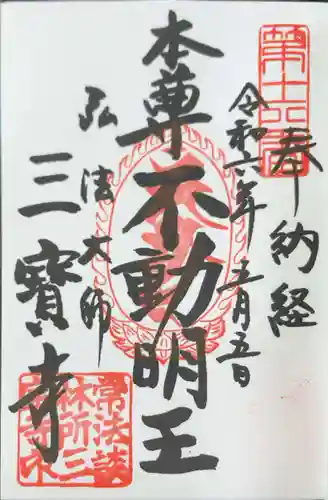 奉納経
第十六番
令和六年五月五日
本尊不動明王
弘法大師
三寶寺